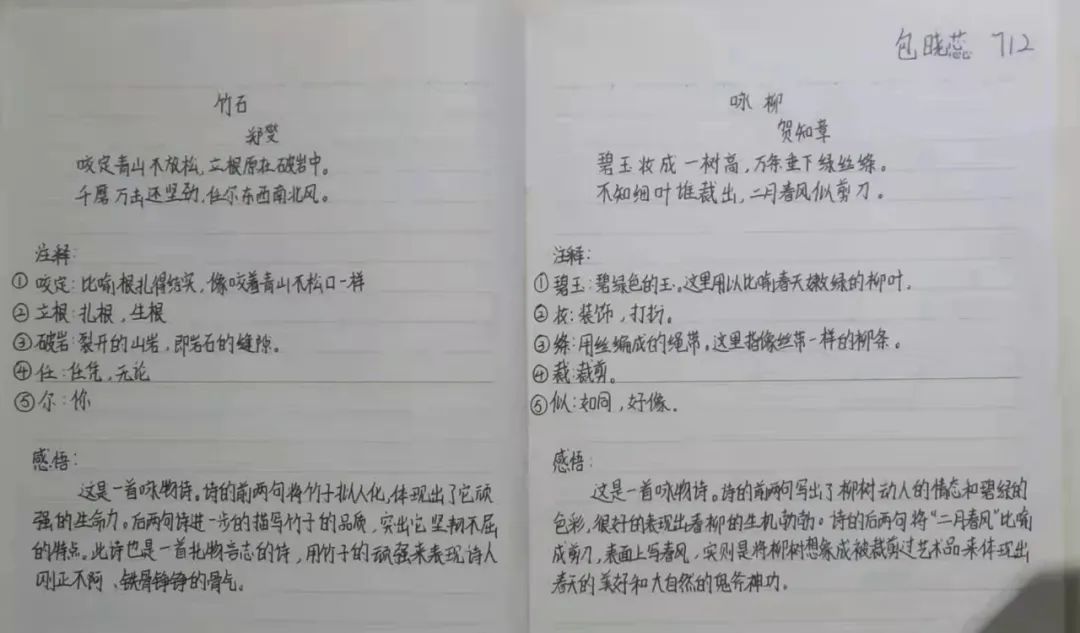 包晓蕊 712
竹石
郑燮
咬定青山不放松，立根原在破岩中。
千磨万击还坚劲，任尔东西南北风。
注释：
①咬定：比喻根扎得结实，像咬着青山不松口一样
②立根：扎根，生根
③破岩：裂开的山岩，即岩石的缝隙。
④任：任凭，无论
⑤尔：你
感悟：
这是一首咏物诗。诗的前两句将竹子拟人化，体现出了它顽
强的生命力。后两句诗进一步的描写竹子的品质，突出它坚韧不屈
的特点。此诗也是一首托物言志的诗，用竹子的顽强来表现诗人
刚正不阿、铁骨铮铮的骨气。
咏柳
贺知章
碧玉妆成一树高，万条垂下绿丝绦。
不知细叶谁裁出，二月春风似剪刀。
注释：
①碧玉：碧绿色的玉。这里用以比喻春天嫩绿的柳叶。
②妆：装饰，打扮。
③绦：用丝编成的绳带。这里指像丝带一样的柳条。
④裁：裁剪。
⑤似：如同，好像。
感悟：
这是一首咏物诗。诗的前两句写出了柳树动人的情态和碧绿的
色彩，很好的表现出春柳的生机勃勃。诗的后两句将“二月春风”比喻
成剪刀，表面上写春风，实则是将柳树想象成被裁剪过艺术品来体现出
春天的美好和大自然的鬼斧神功。